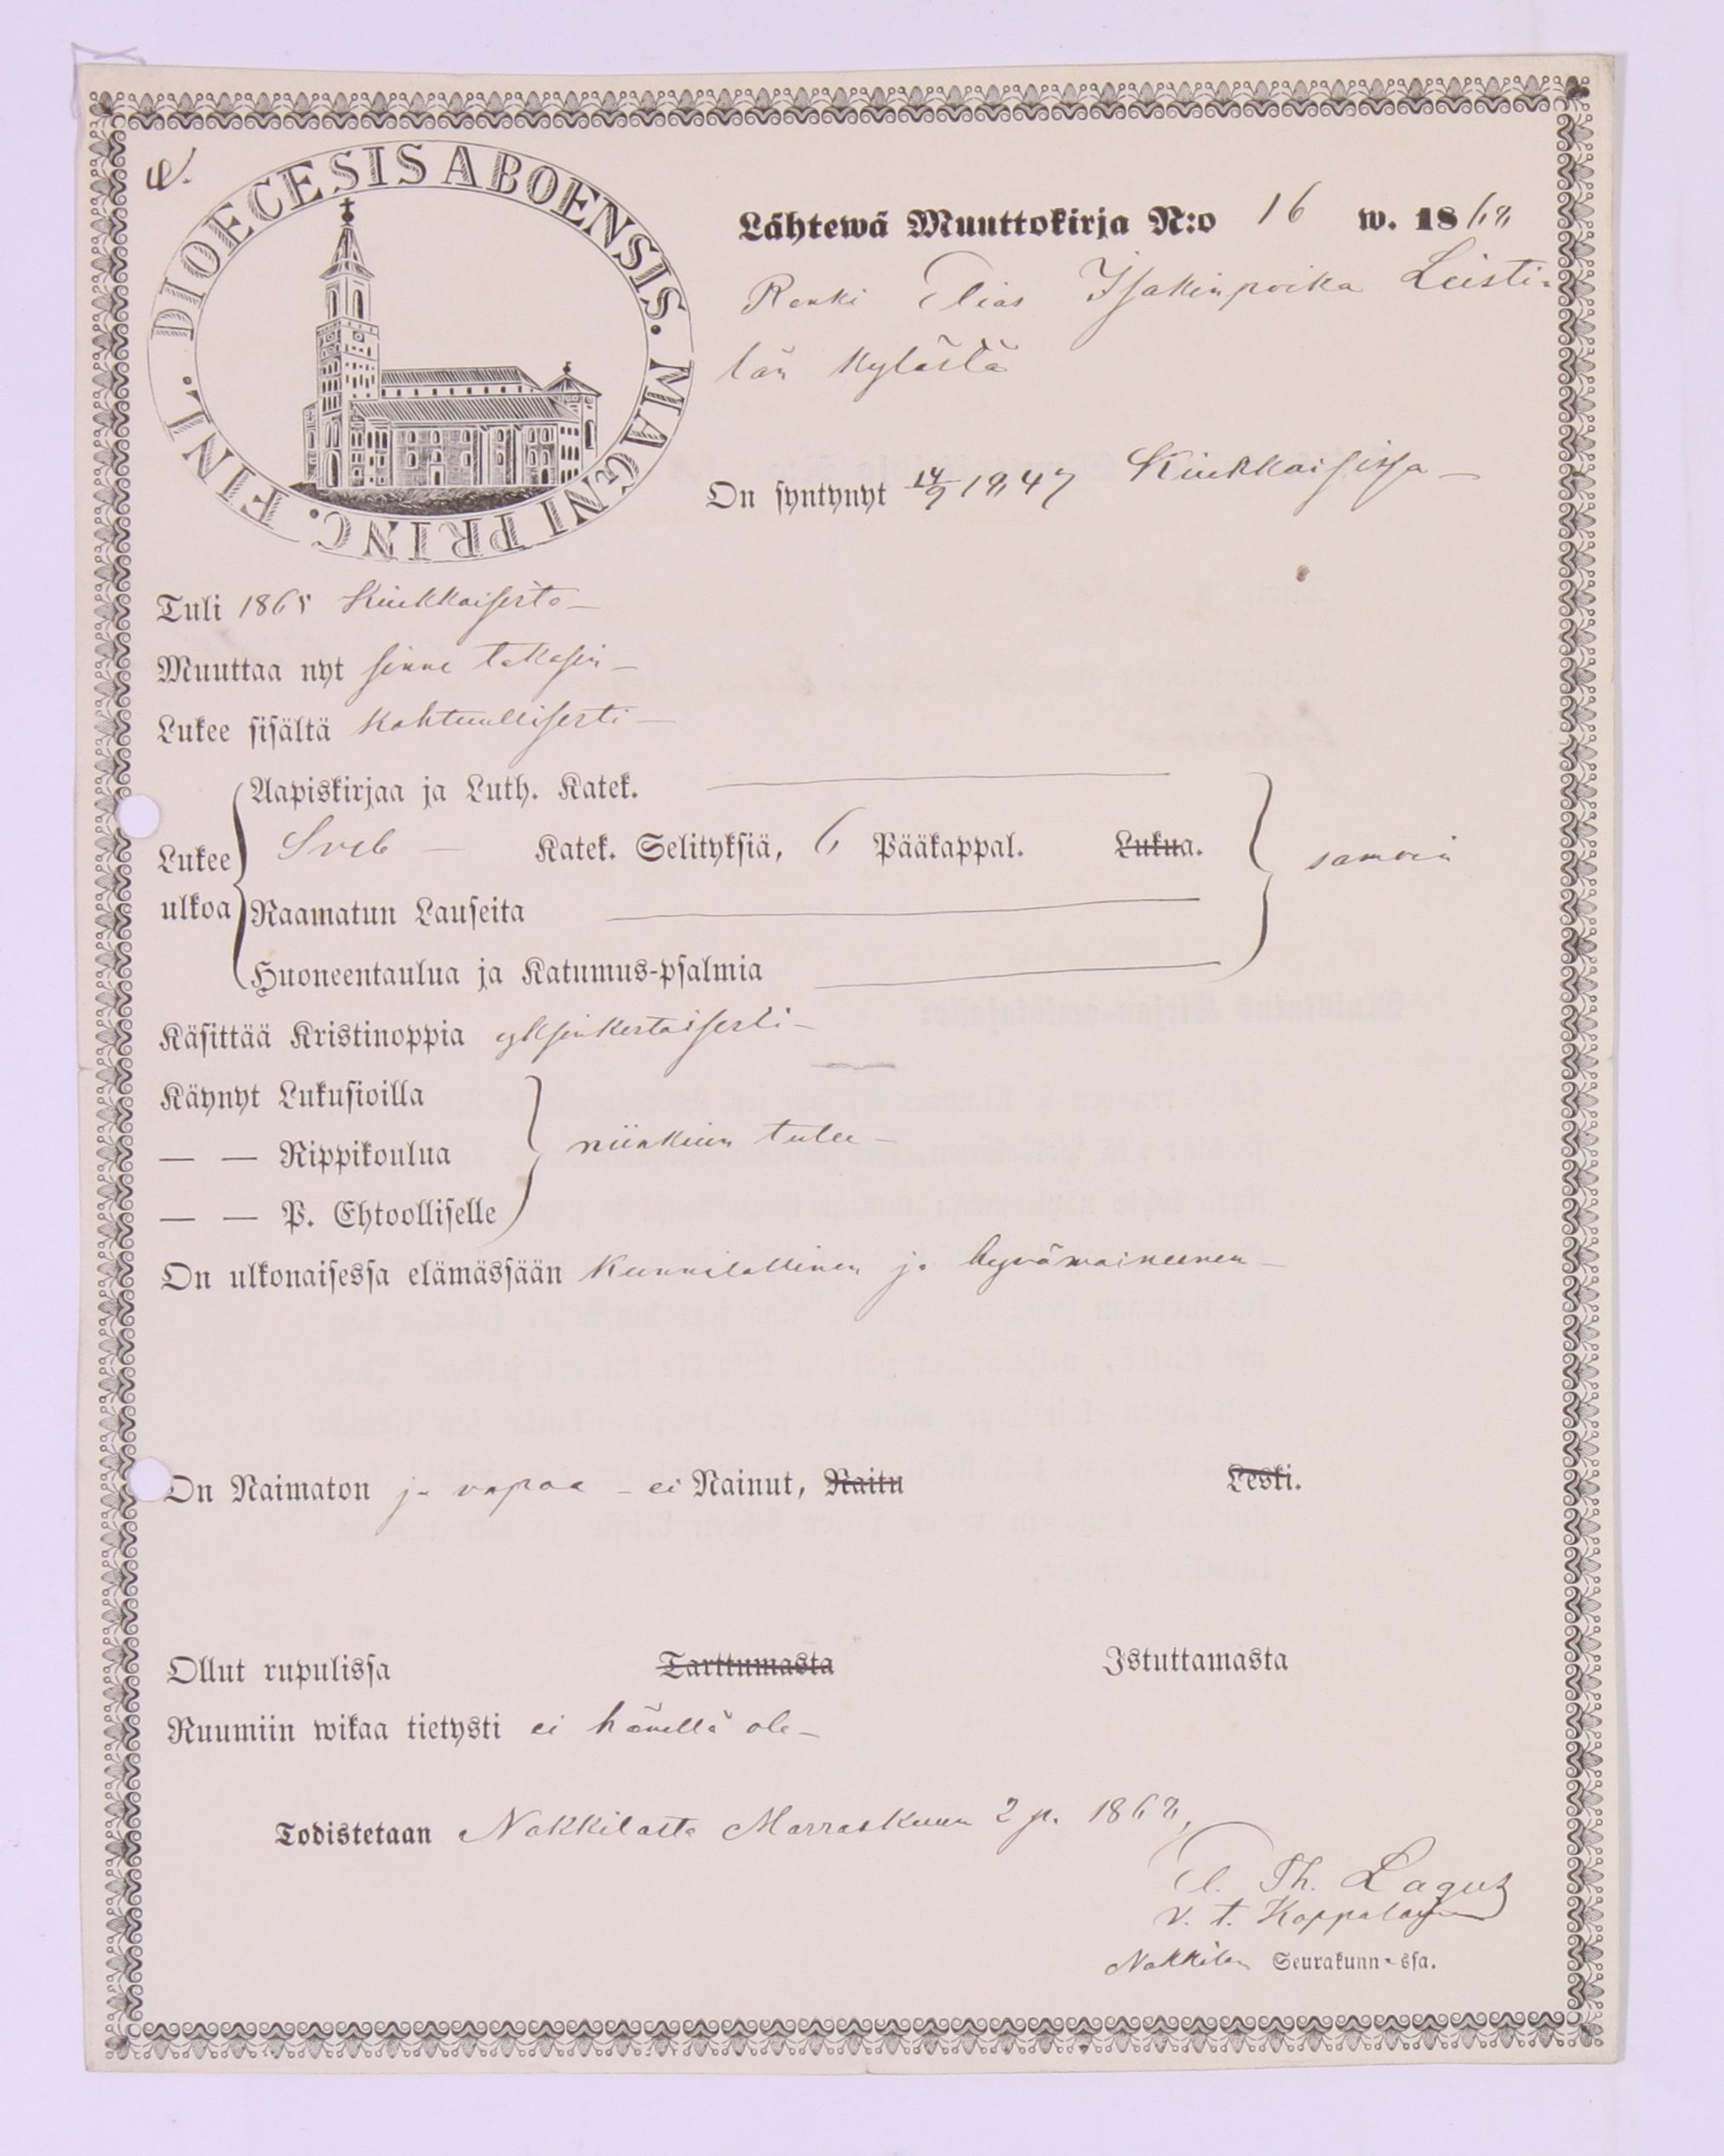 DIOECESIS ABOENSIS. MAGNI PRINC. FINL.
Lähtewä Muuttokirja N:o 16 w. 1868
Renki Elias Isakinpoika Leisti-
län kylästä
On syntynyt 14/9 1847 Kiukkaisissa —
Tuli 1865 Kiukkaisista —
Muuttaa nyt sinne takasin —
Lukee sisältä kohtuullisesti —
Aapiskirjaa ja Luth. Katek.
Lukee Sveb — Katek. Selityksiä, 6 Pääkappal. Lukua. samoin
ulkoa Raamatun Lauseita
Huoneentaulua ja Katumus-psalmia
Käsittää Kristinoppia yksinkertaisesti —
Käynyt Lukusioilla
— — Rippikoulua niinkuin tulee —
— — P. Ehtoolliselle
On ulkonaisessa elämässään kunniallinen ja hyvämaineinen —
On Naimaton ja vapaa — ei Nainut, Naitu Leski.
Ollut rupulissa Tarttumasta Istuttamasta
Ruumiin wikaa tietysti ei hänellä ole —
Todistetaan Nakkilasta Marraskuun 2 p. 1868,
Th. Lagus
v. t. Kappalainen
Nakkilan Seurakunn-ssa.